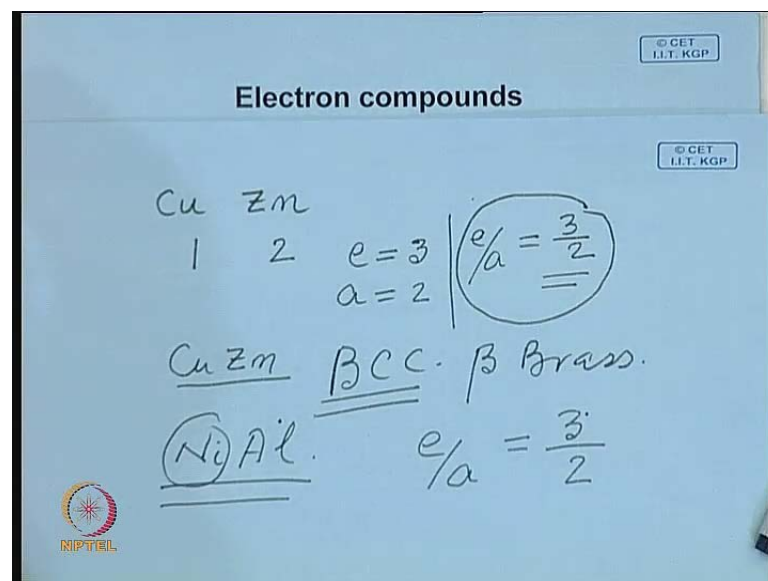 © CET
I.I.T. KGP
Electron compounds
© CET
I.I.T. KGP
Cu Zn
1 2 e = 3 e/a = 3/2
a = 2
CuZn BCC. β Brass.
NiAl. e/a = 3/2
NPTEL